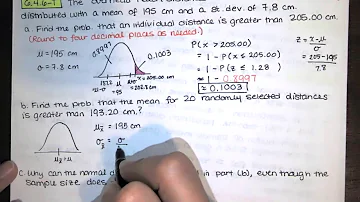 6.4.6-T
The overhead reach distances
distributed with a mean of 195 cm and a st. dev. of 7.8 cm.
a. Find the prob. that an individual distance is greater than 205.00 cm.
(Round to four decimal places as needed.)
μ = 195 cm
σ = 7.8 cm
0.8997
0.1003
μ = 195
205.00 cm
μ+σ = 202.8 cm
P(x > 205.00)
= 1 - P(x ≤ 205.00)
= 1 - P(z ≤ 1.28
= 1 - 0.8997
= 0.1003
z = x-μ / σ
205-195 / 7.8
b. Find the prob. that the mean for 20 randomly selected distances
is greater than 193.20 cm.?
μx̄ = 195 cm
σx̄ = σ
μx̄ = μ
c. Why can the normal d in part (b), even though the
sample size does